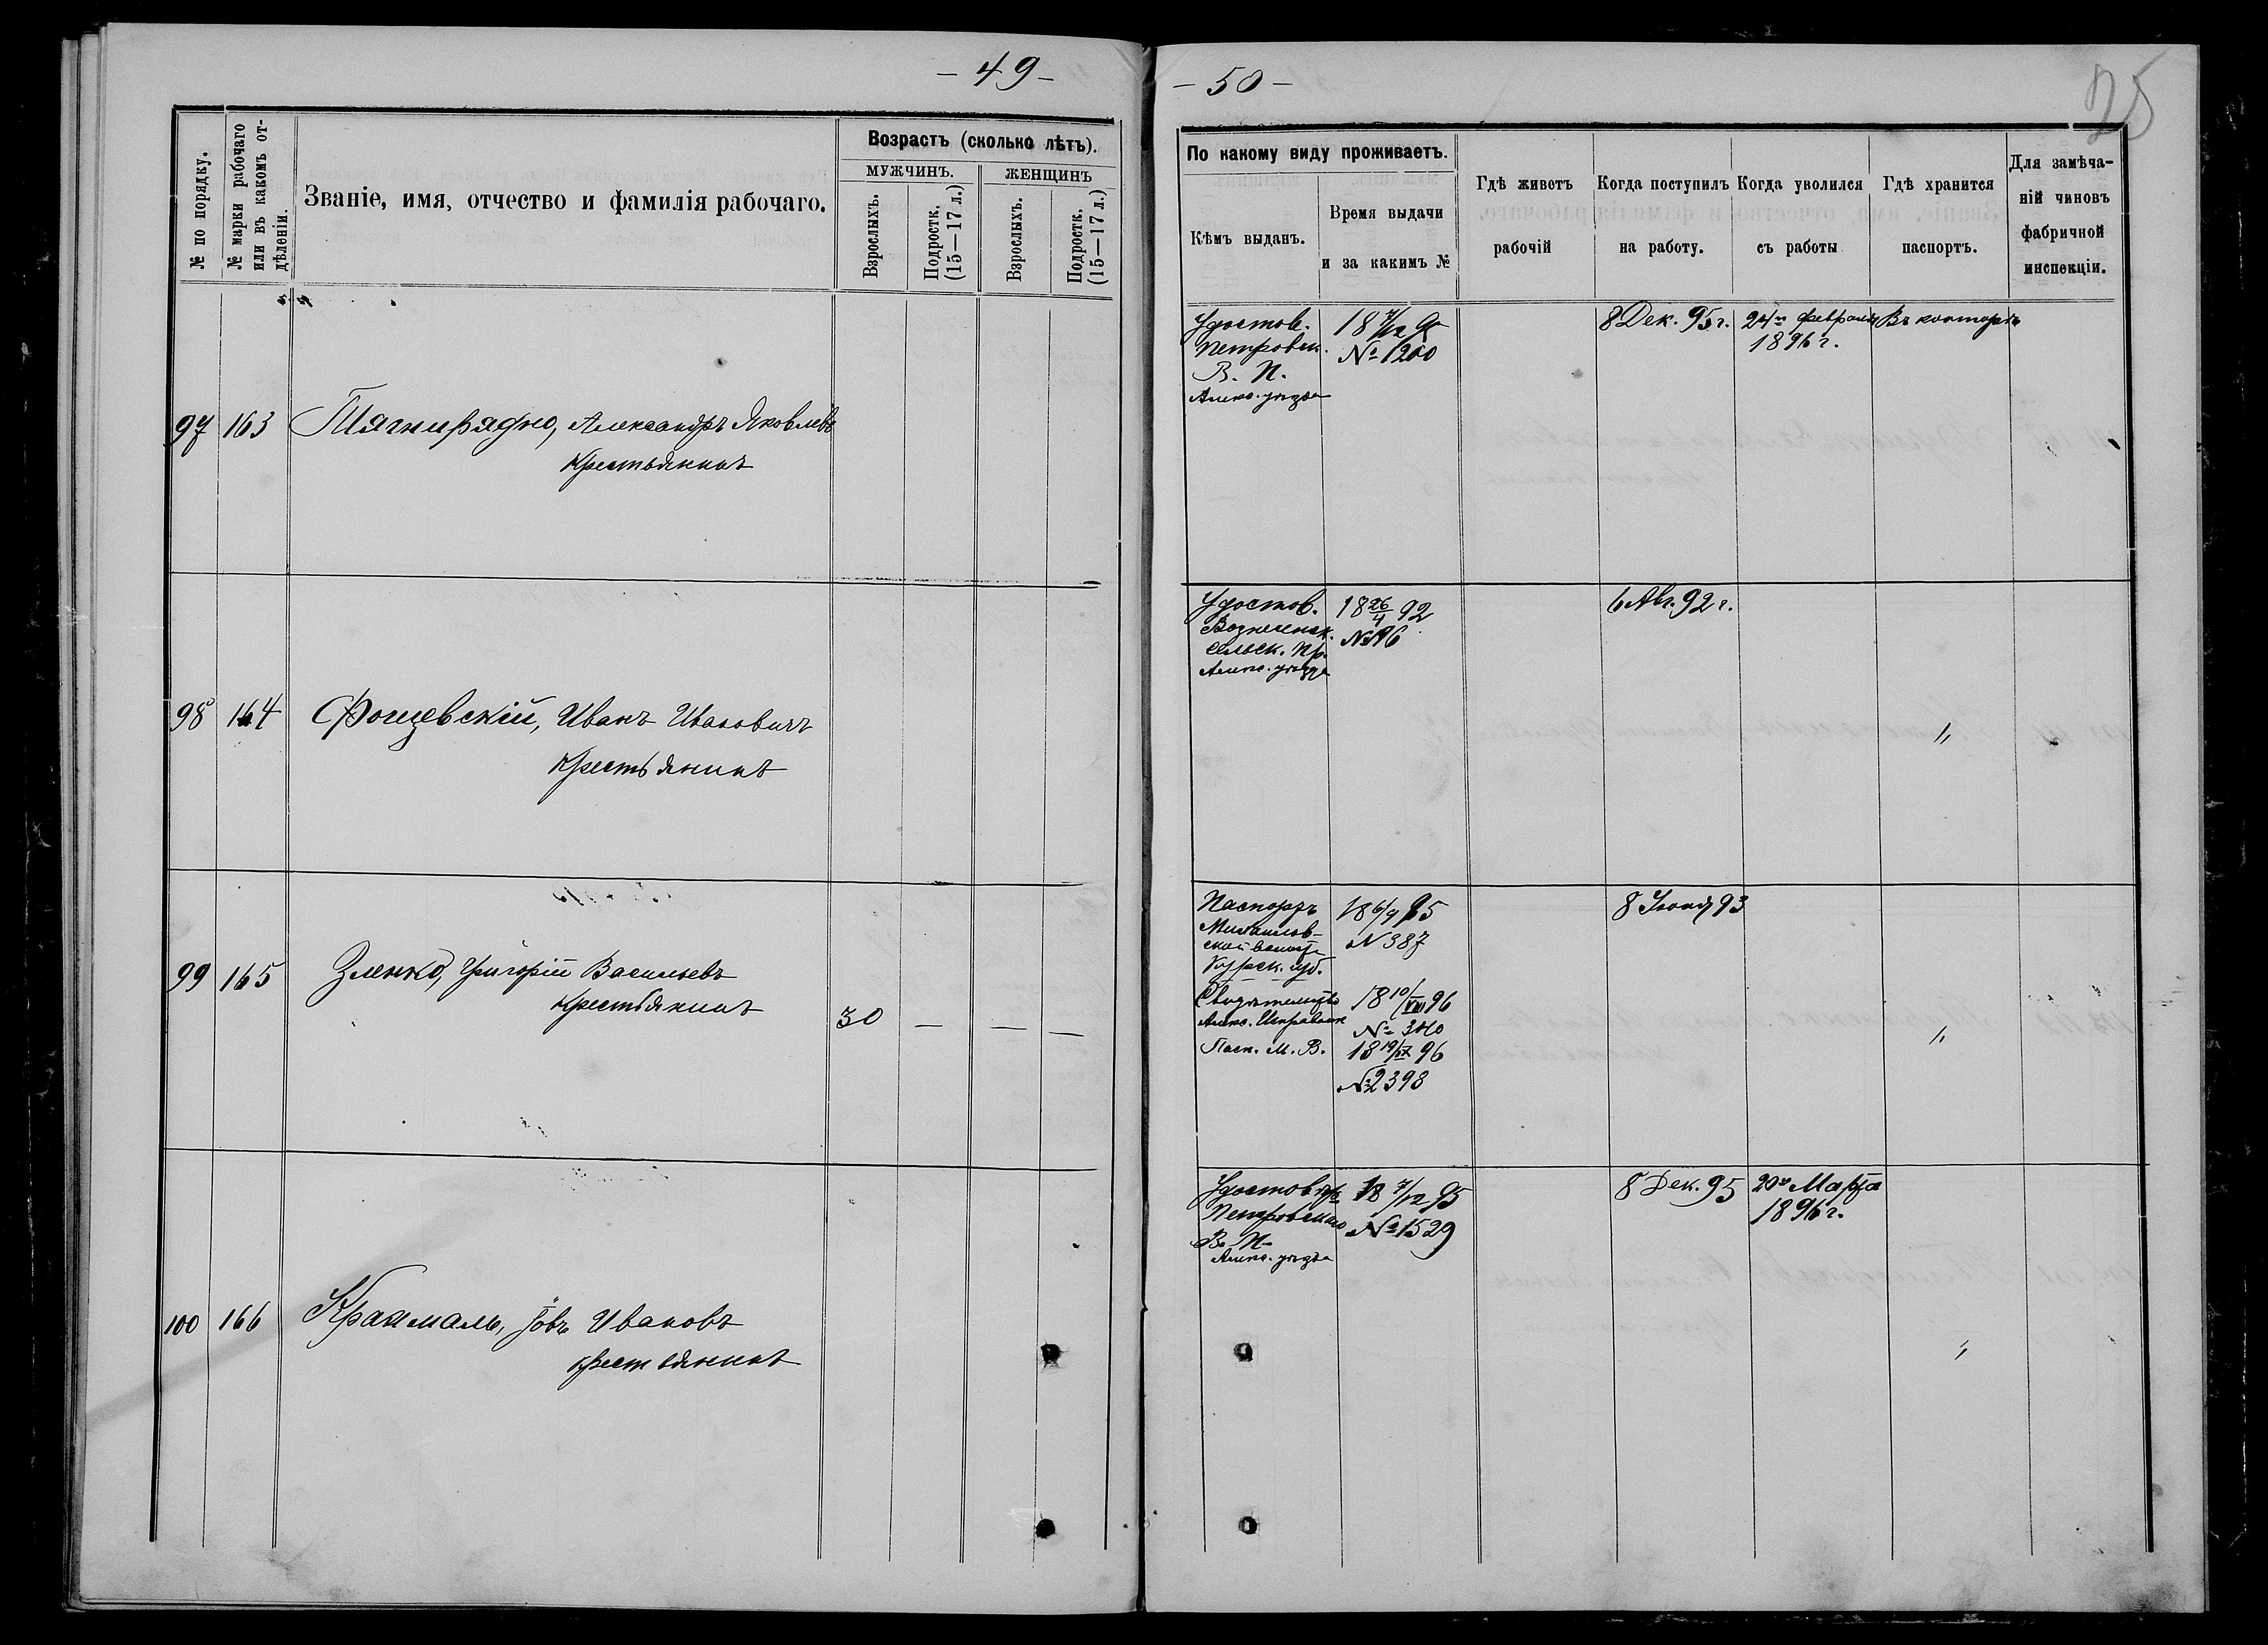 - 49 -
№ по порядку.
№ марки рабочаго
или въ какомъ от-
дѣленіи.
Званіе, имя, отчество и фамилія рабочаго.
Возрастъ (сколько лѣтъ).
МУЖЧИНЪ.
ЖЕНЩИНЪ
Взрослыхъ.
Подростк.
(15—17 л.)
Взрослыхъ.
Подростк.
(15—17 л.)
97 163 Тягнирядно, Александръ Яковлевъ
Крестьянинъ
98 164 Фощевскій, Иванъ Ивановичъ
Крестьянинъ
99 165 Зленко, Григорій Васильевъ
Крестьянинъ
30 — — —
100 166 Іовъ Ивановъ
крестьянинъ
- 50 -
25
По какому виду проживаетъ.
Кѣмъ выданъ.
Время выдачи
и за какимъ №
Гдѣ живетъ
рабочій
Когда поступилъ
на работу.
Когда уволился
съ работы
Гдѣ хранится
паспортъ.
Для замѣча-
ній чиновъ
фабричной
инспекціи.
Удостов. 18 7/12 95 8 Дек. 95 г. 24го февраля Въ конторѣ
Петровск. № 1200 1896 г.
В. П.
Алекс. уѣзда
Удостов. 18 26/4 92 6 Авг. 92 г.
Вознесенск. №
Сельск. Пр.
Алекс. уѣзда
"
Паспортъ 18 6/9 95 8 Іюня 93
Михаилов- № 387
ской волост.
Курск. губ.
Свидѣтельство 18 10/VIII 96
Алекс. Исправник № 340
Пасп. М. В. 18 19/IX 96
№ 2398
"
Удостовѣр 18 7/12 95 8 Дек. 95 20го Марта
Петровскаго № 1529 1896 г.
В. П.
Алекс. уѣзда
"